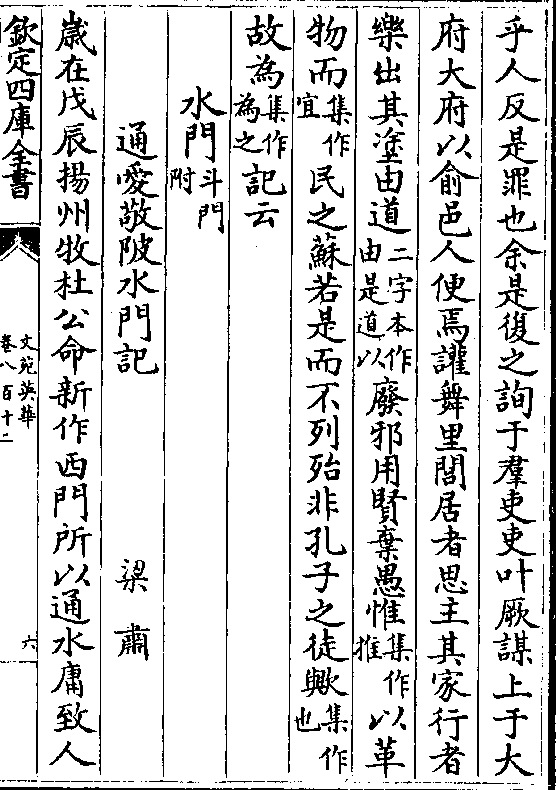 乎人反是罪也余是復之詢于羣吏吏叶厥謀上于大
府大府以俞邑人便焉讙舞里閭居者思主其家行者
樂出其塗由道二字本作由是道以廢邪用賢棄愚惟集作推以革
物而集作宜民之蘇若是而不列殆非孔子之徒歟集作也
故為集作為之記云
水門斗門附
通愛敬陂水門記 梁肅
歲在戊辰揚州牧杜公命新作西門所以通水庸致人
欽定四庫全書
文苑英華
卷八百十二
六